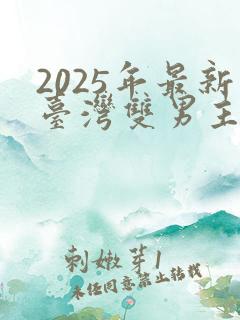 2025年最新
臺灣雙男主
刺嫩芽1
未任同意禁止转载